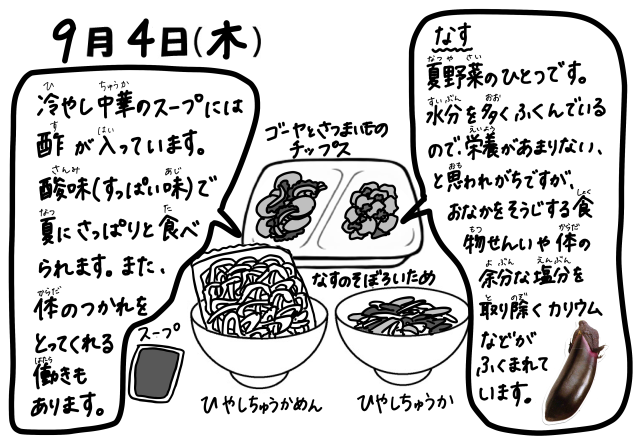 9月4日(木)
冷やし中華のスープには
酢が入っています。
酸味(すっぱい味)で
夏にさっぱりと食べ
られます。また、
体のつかれを
とってくれる
働きも
あります。
ゴーヤとさつまいもの
チップス
なすのそぼろいため
スープ
ひやしちゅうかめん
ひやしちゅうか
なす
夏野菜のひとつです。
水分を多くふくんでいる
ので、栄養があまりない、
と思われがちですが、
おなかをそうじする食
物せんいや体の
余分な塩分を
取り除くカリウム
などが
ふくまれて
います。